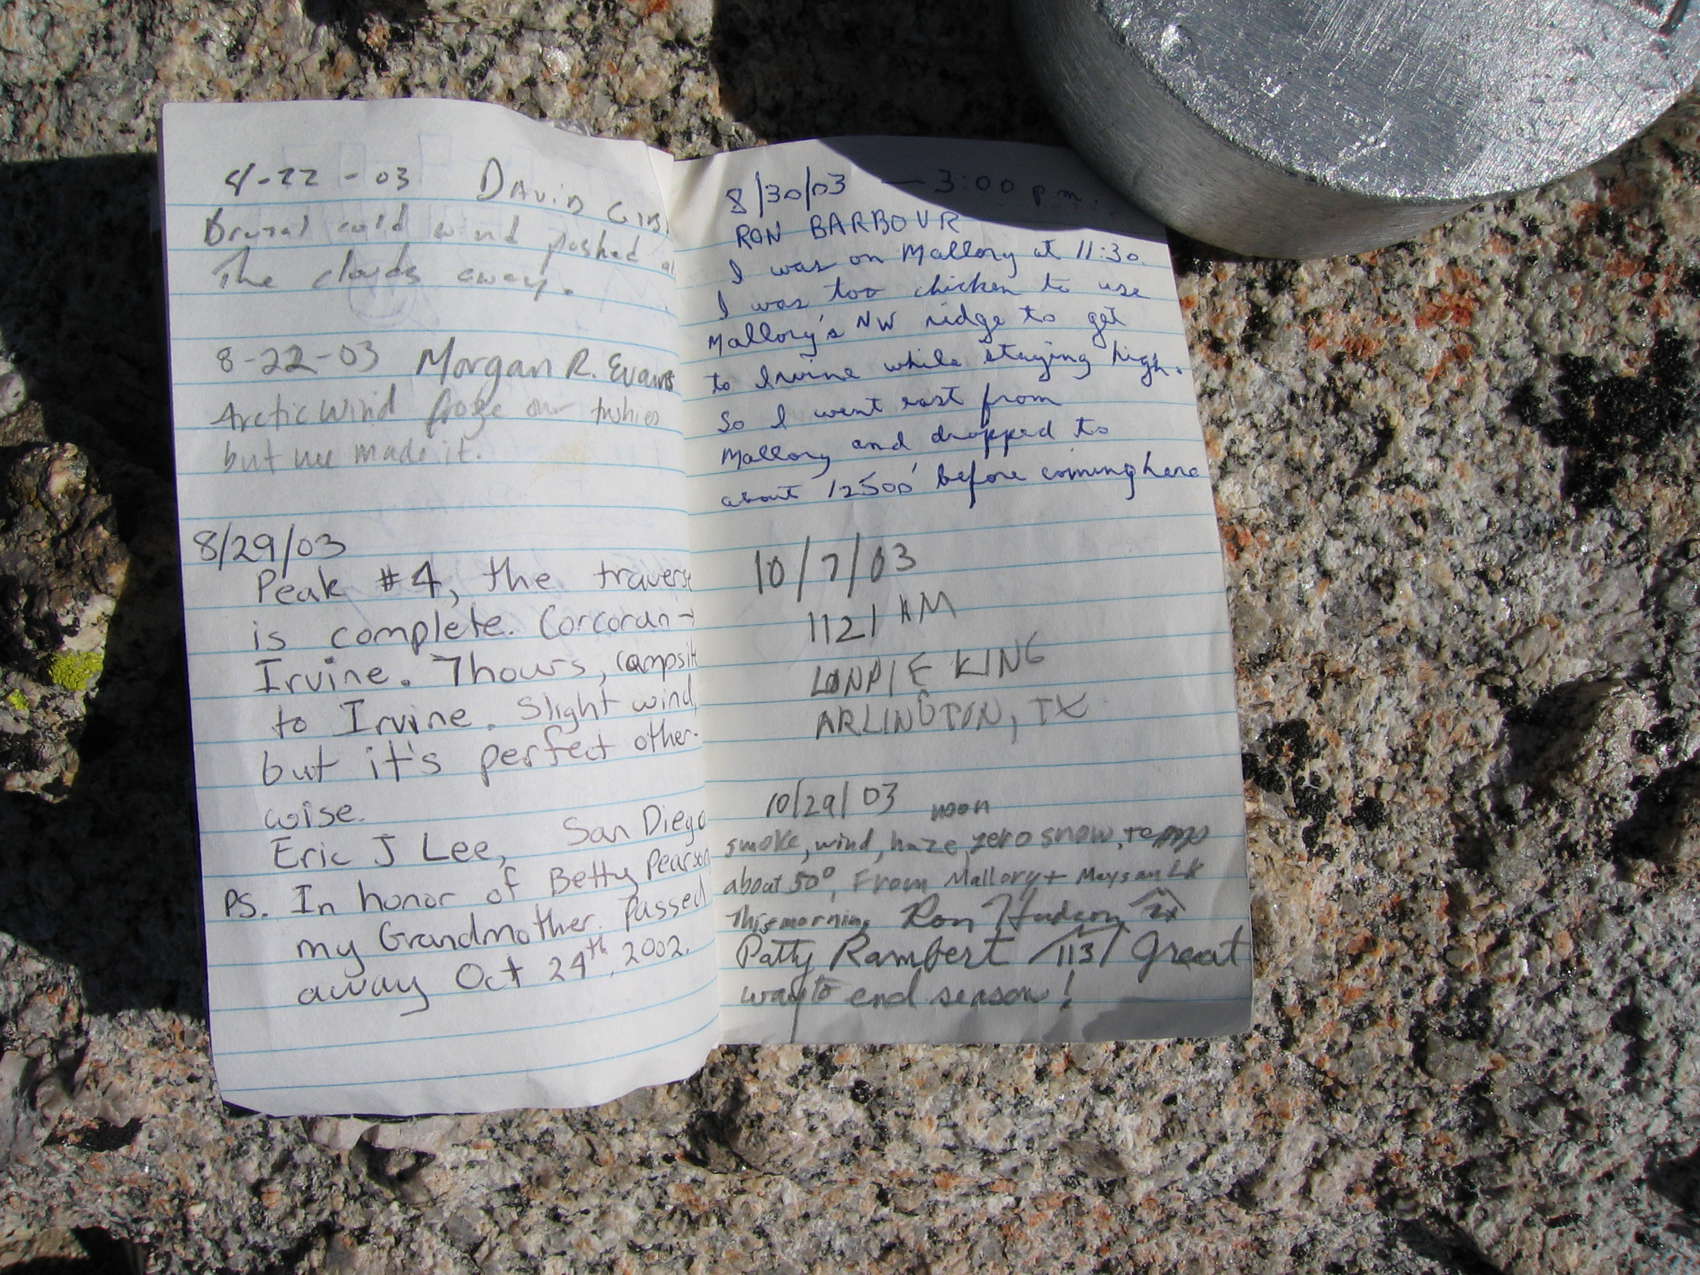 8-22-03 DAVID
Brutal cold wind pushed
The clouds away.
8-22-03 Morgan R. Evans
Arctic wind froze our tushies
but we made it.
8/29/03
Peak #4, the traverse
is complete. Corcoran →
Irvine. 7 hours, campsite
to Irvine. Slight wind,
but it's perfect other-
wise.
Eric J Lee, San Diego
PS. In honor of Betty Pearson
my Grandmother. Passed
away Oct 24th, 2002.
8/30/03 — 3:00 p.m.
RON BARBOUR
I was on Mallory at 11:30.
I was too chicken to use
Mallory's NW ridge to get
to Irvine while staying high.
So I went east from
Mallory and dropped to
about 12500' before coming here
10/7/03
1121 AM
KING
ARLINGTON, TX
10/29/03 noon
smoke, wind, haze, zero snow, temp
about 50°, From Mallory + Meysan LK
This morning Ron Hudson
Patty Rambert 113 Great
way to end season!